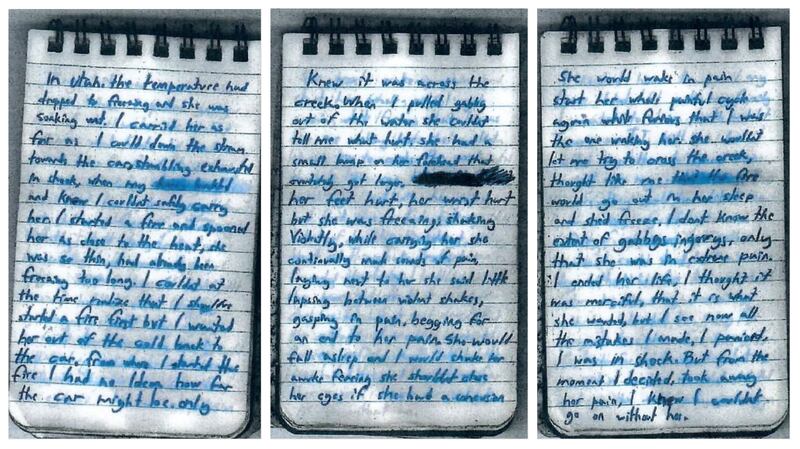 In Utah, the temperature had
dropped to freezing and she was
soaking wet. I carried her as
far as I could down the stream
towards the car, stumbling exhausted
in shock, when my
and knew I couldnt safely carry
her. I started a fire and spooned
her as close to the heat, she
was so thin, had already been
freezing too long. I couldnt at
the time realize that I should've
started a fire first but I wanted
her out of the cold back to
the car. from when I started the
fire I had no Idea how far
the car might be. only
Knew it was across the
creek. When I pulled gabby
out of the water she couldnt
tell me what hurt. she had a
small bump on her forehead that
eventually got larger.
her feet hurt, her wrist hurt
but she was freezing, shaking
Violently, while carrying her she
continually made sounds of pain,
laying next to her she said little
lapsing between violent shakes,
gasping in pain, begging for
an end to her pain. She would
fall asleep and I would shake her
awake fearing she shouldnt close
her eyes if she had a concusion
She would wake in pain
start her whole painful cycle
again while furious that I was
the one waking her. she wouldnt
let me try to cross the creek,
thought like me that the fire
would go out in her sleep
and she'd freeze. I dont know the
extent of gabbys ingurys, only
that she was in extreme pain.
I ended her life, I thought it
was merciful, that it is what
she wanted, but I see now all
the mistakes I made, I panicked,
I was in shock. But from the
moment I decided, took away
her pain, I knew I wouldnt
go on without her.